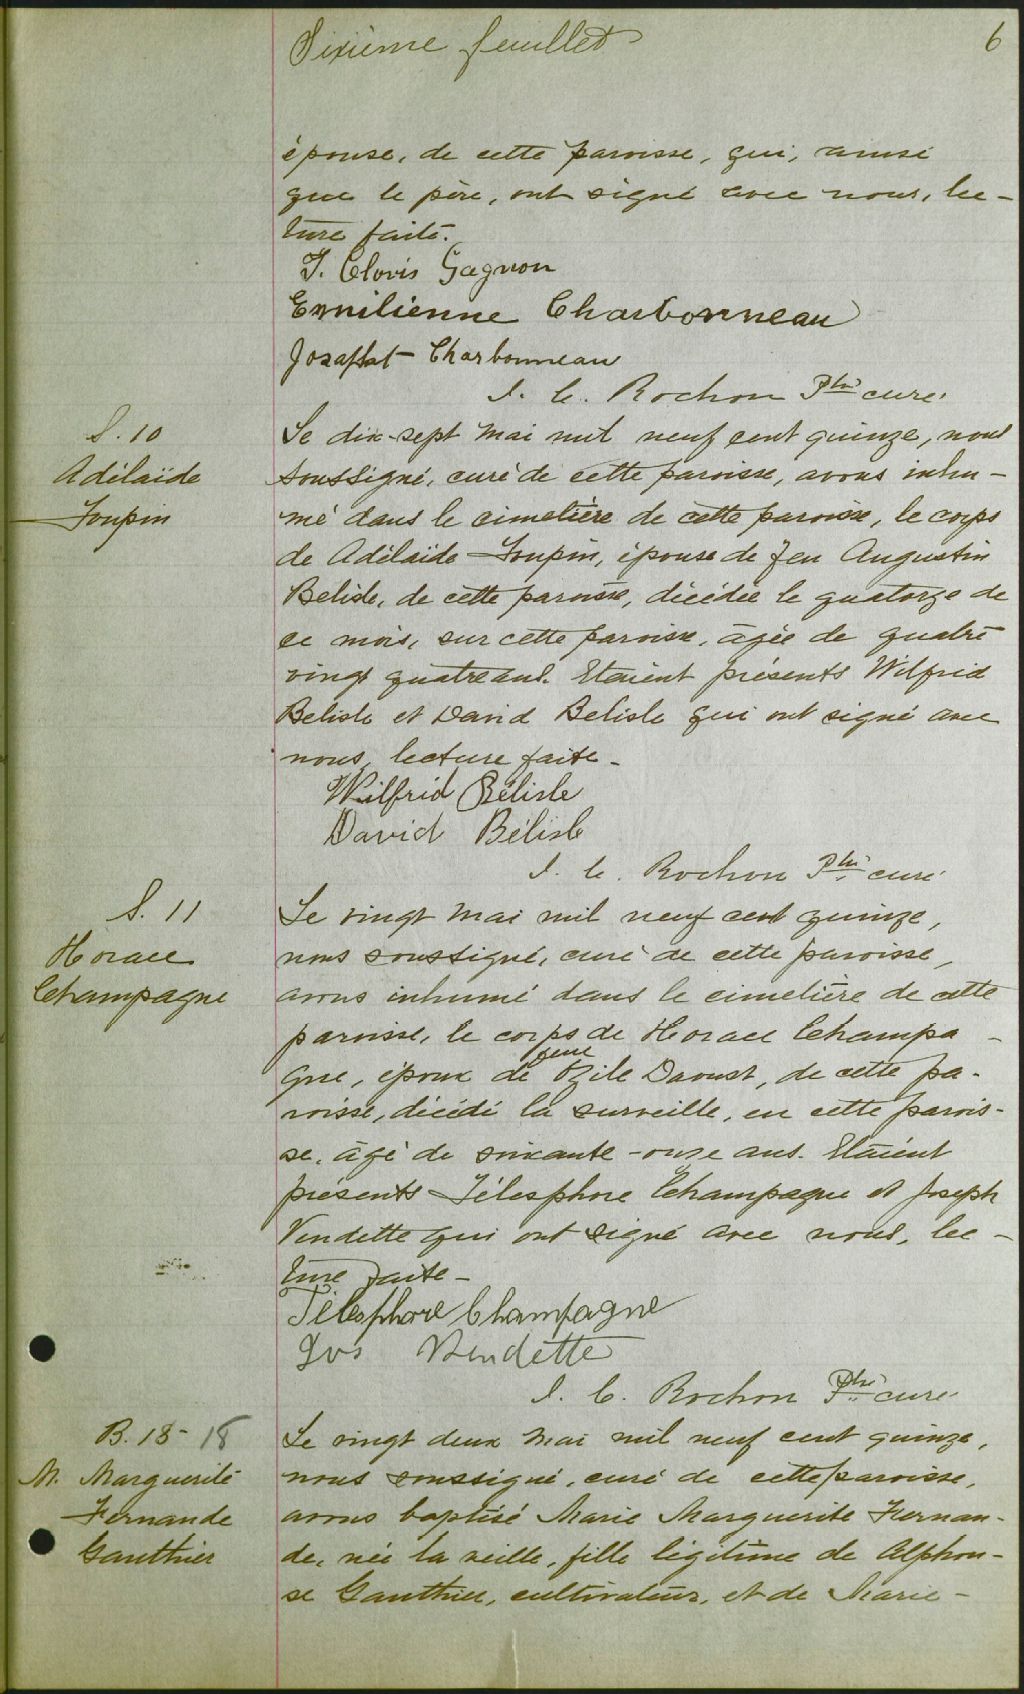 Sixième feuillet
6
épouse, de cette paroisse, qui, ainsi
que le père, ont signé avec nous, lec-
ture faite.
J. Clovis Gagnon
Emilienne Charbonneau
Josaphat Charbonneau
J. C. Rochon Ptre curé
S. 10
Adélaïde
Toupin
Le dix-sept mai mil neuf cent quinze, nous
soussigné, curé de cette paroisse, avons inhu-
mé dans le cimetière de cette paroisse, le corps
de Adélaïde Toupin, épouse de feu Augustin
Belisle, de cette paroisse, décédée le quatorze de
ce mois, sur cette paroisse, âgée de quatre
vingt quatre ans. Etaient présents Wilfrid
Belisle et David Belisle qui ont signé avec
nous, lecture faite.
Wilfrid Bélisle
David Bélisle
J. C. Rochon Ptre curé
S. 11
Horace
Champagne
Le vingt mai mil neuf cent quinze,
nous soussigné, curé de cette paroisse,
avons inhumé dans le cimetière de cette
paroisse, le corps de Horace Champa-
gne, époux de feue Ozile Daoust, de cette pa-
roisse, décédé la surveille, en cette parois-
se, âgé de soixante-onze ans. Etaient
présents Télesphore Champagne et Joseph
Vendette qui ont signé avec nous, lec-
ture faite-
Télesphore Champagne
Jos Vendette
J. C. Rochon Ptre curé
B. 18- 18
M. Marguerite
Fernande
Gauthier
Le vingt deux mai mil neuf cent quinze,
nous soussigné, curé de cette paroisse,
avons baptisé Marie Marguerite Fernan-
de, née la veille, fille légitime de Alphon-
se Gauthier, cultivateur, et de Marie-